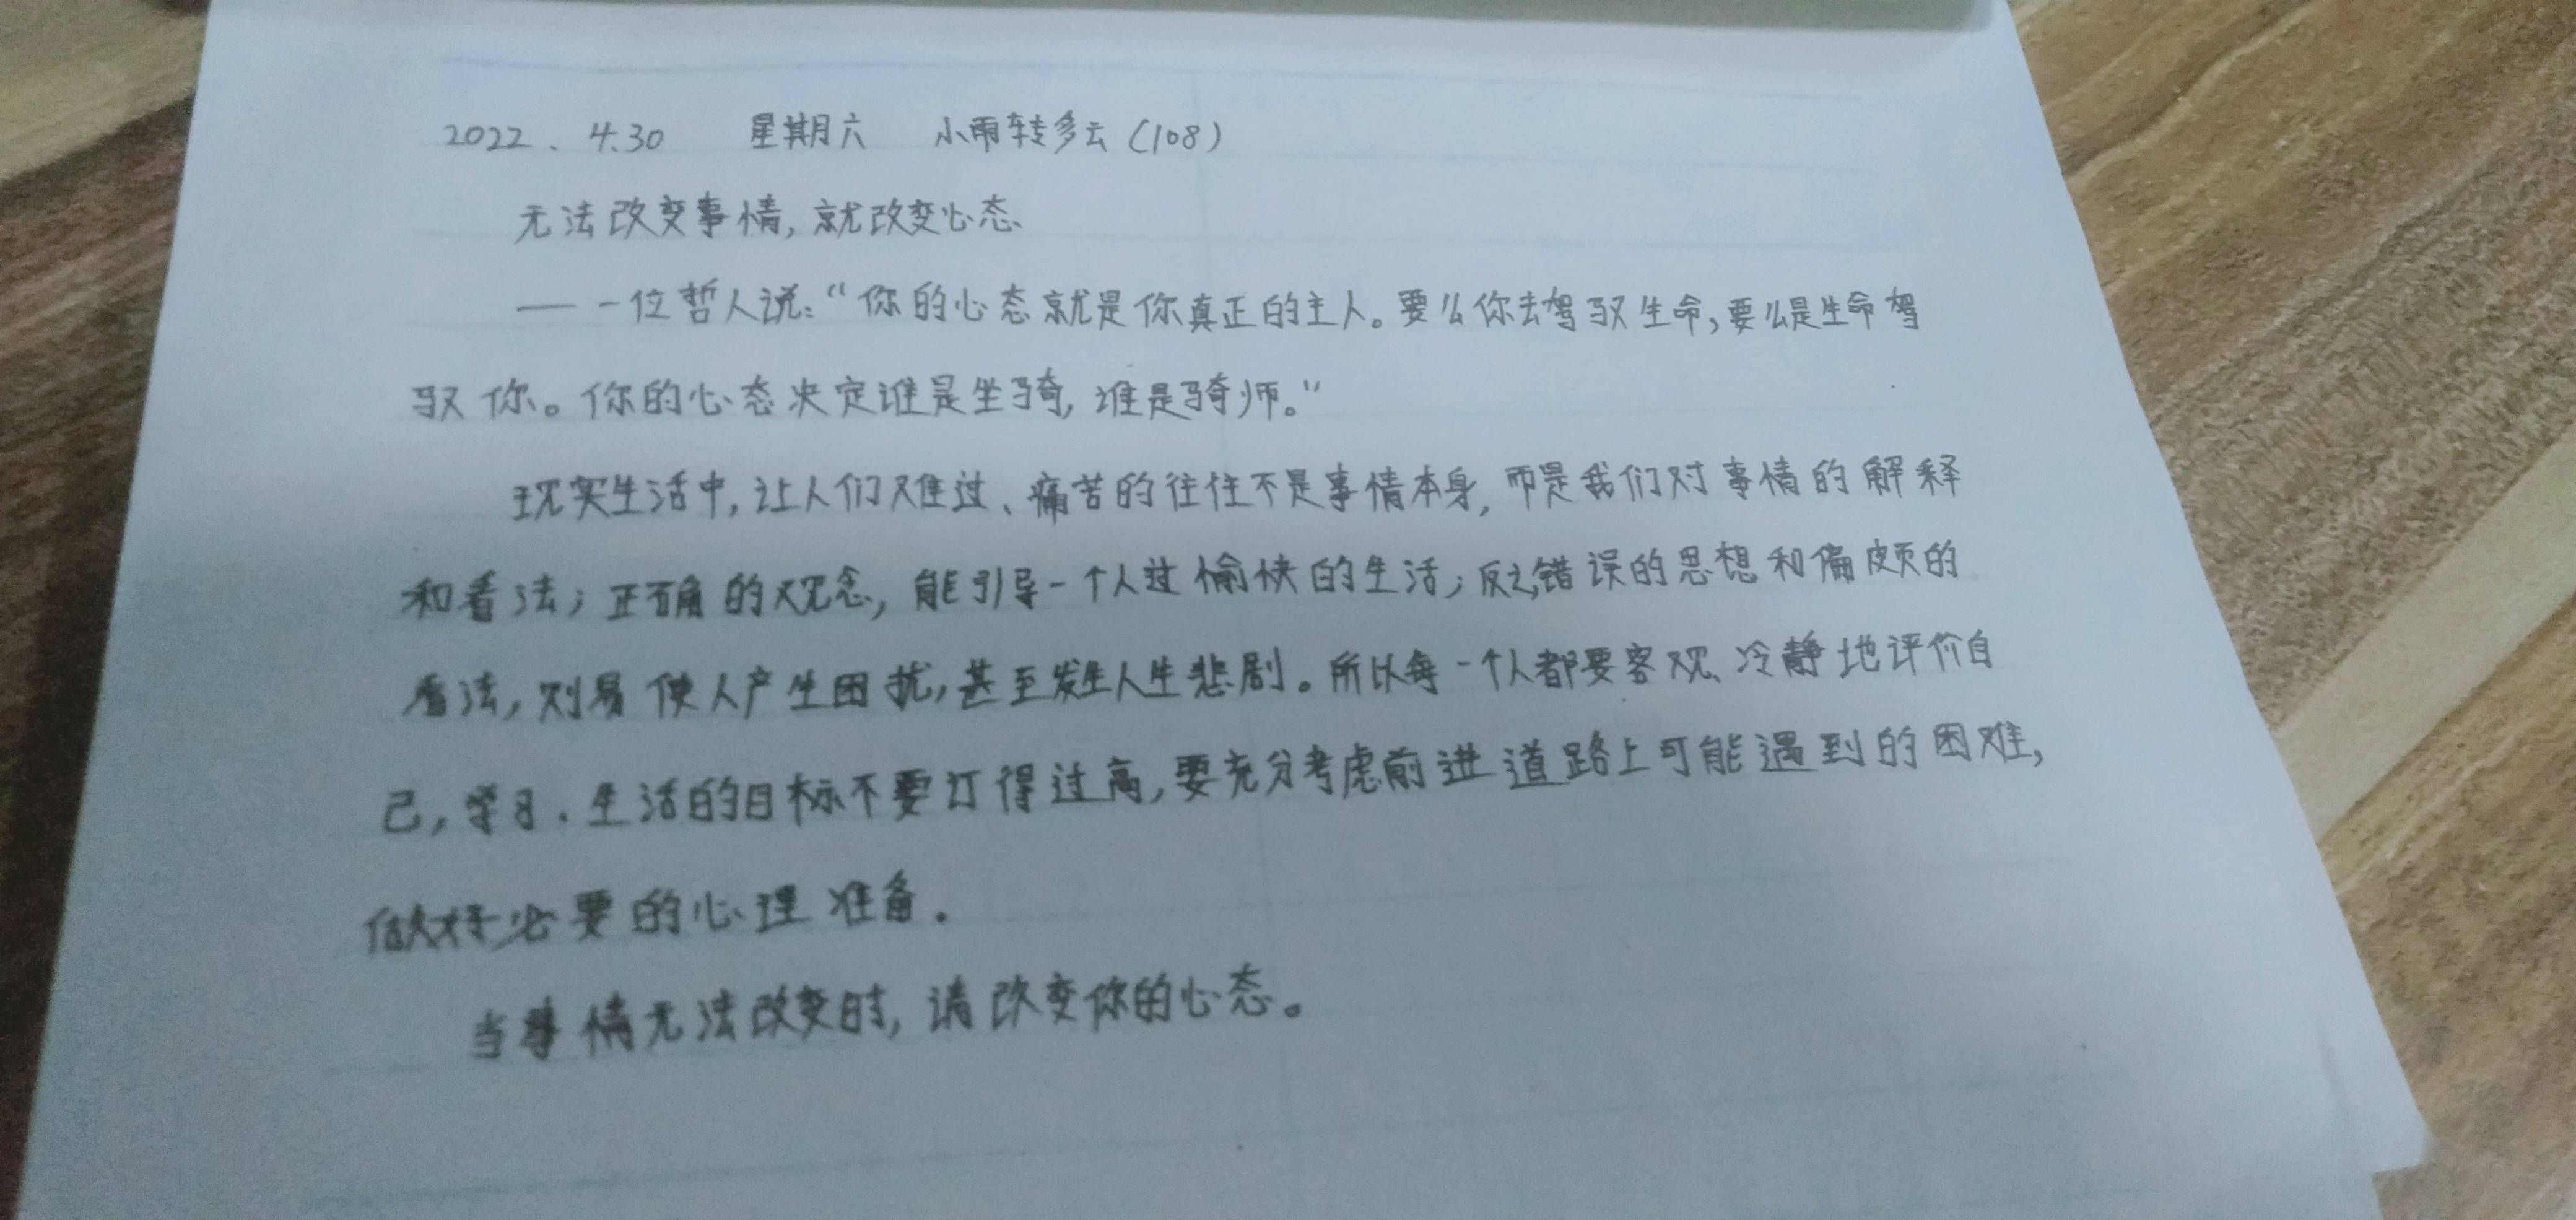 2022、4.30 星期六 小雨转多云(108)
无法改变事情,就改变心态
—— 一位哲人说:“你的心态就是你真正的主人。要么你去驾驭生命,要么是生命驾
驭你。你的心态决定谁是坐骑,谁是骑师。”
现实生活中,让人们难过、痛苦的往往不是事情本身,而是我们对事情的解释
和看法;正确的观念,能引导一个人过愉快的生活;反之,错误的思想和偏颇的
看法,则易使人产生困扰,甚至发生人生悲剧。所以每一个人都要客观、冷静地评价自
己,学习、生活的目标不要订得过高,要充分考虑前进道路上可能遇到的困难,
做好必要的心理准备.
当事情无法改变时,请改变你的心态。